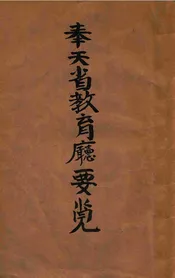 奉天省教育廳要覽